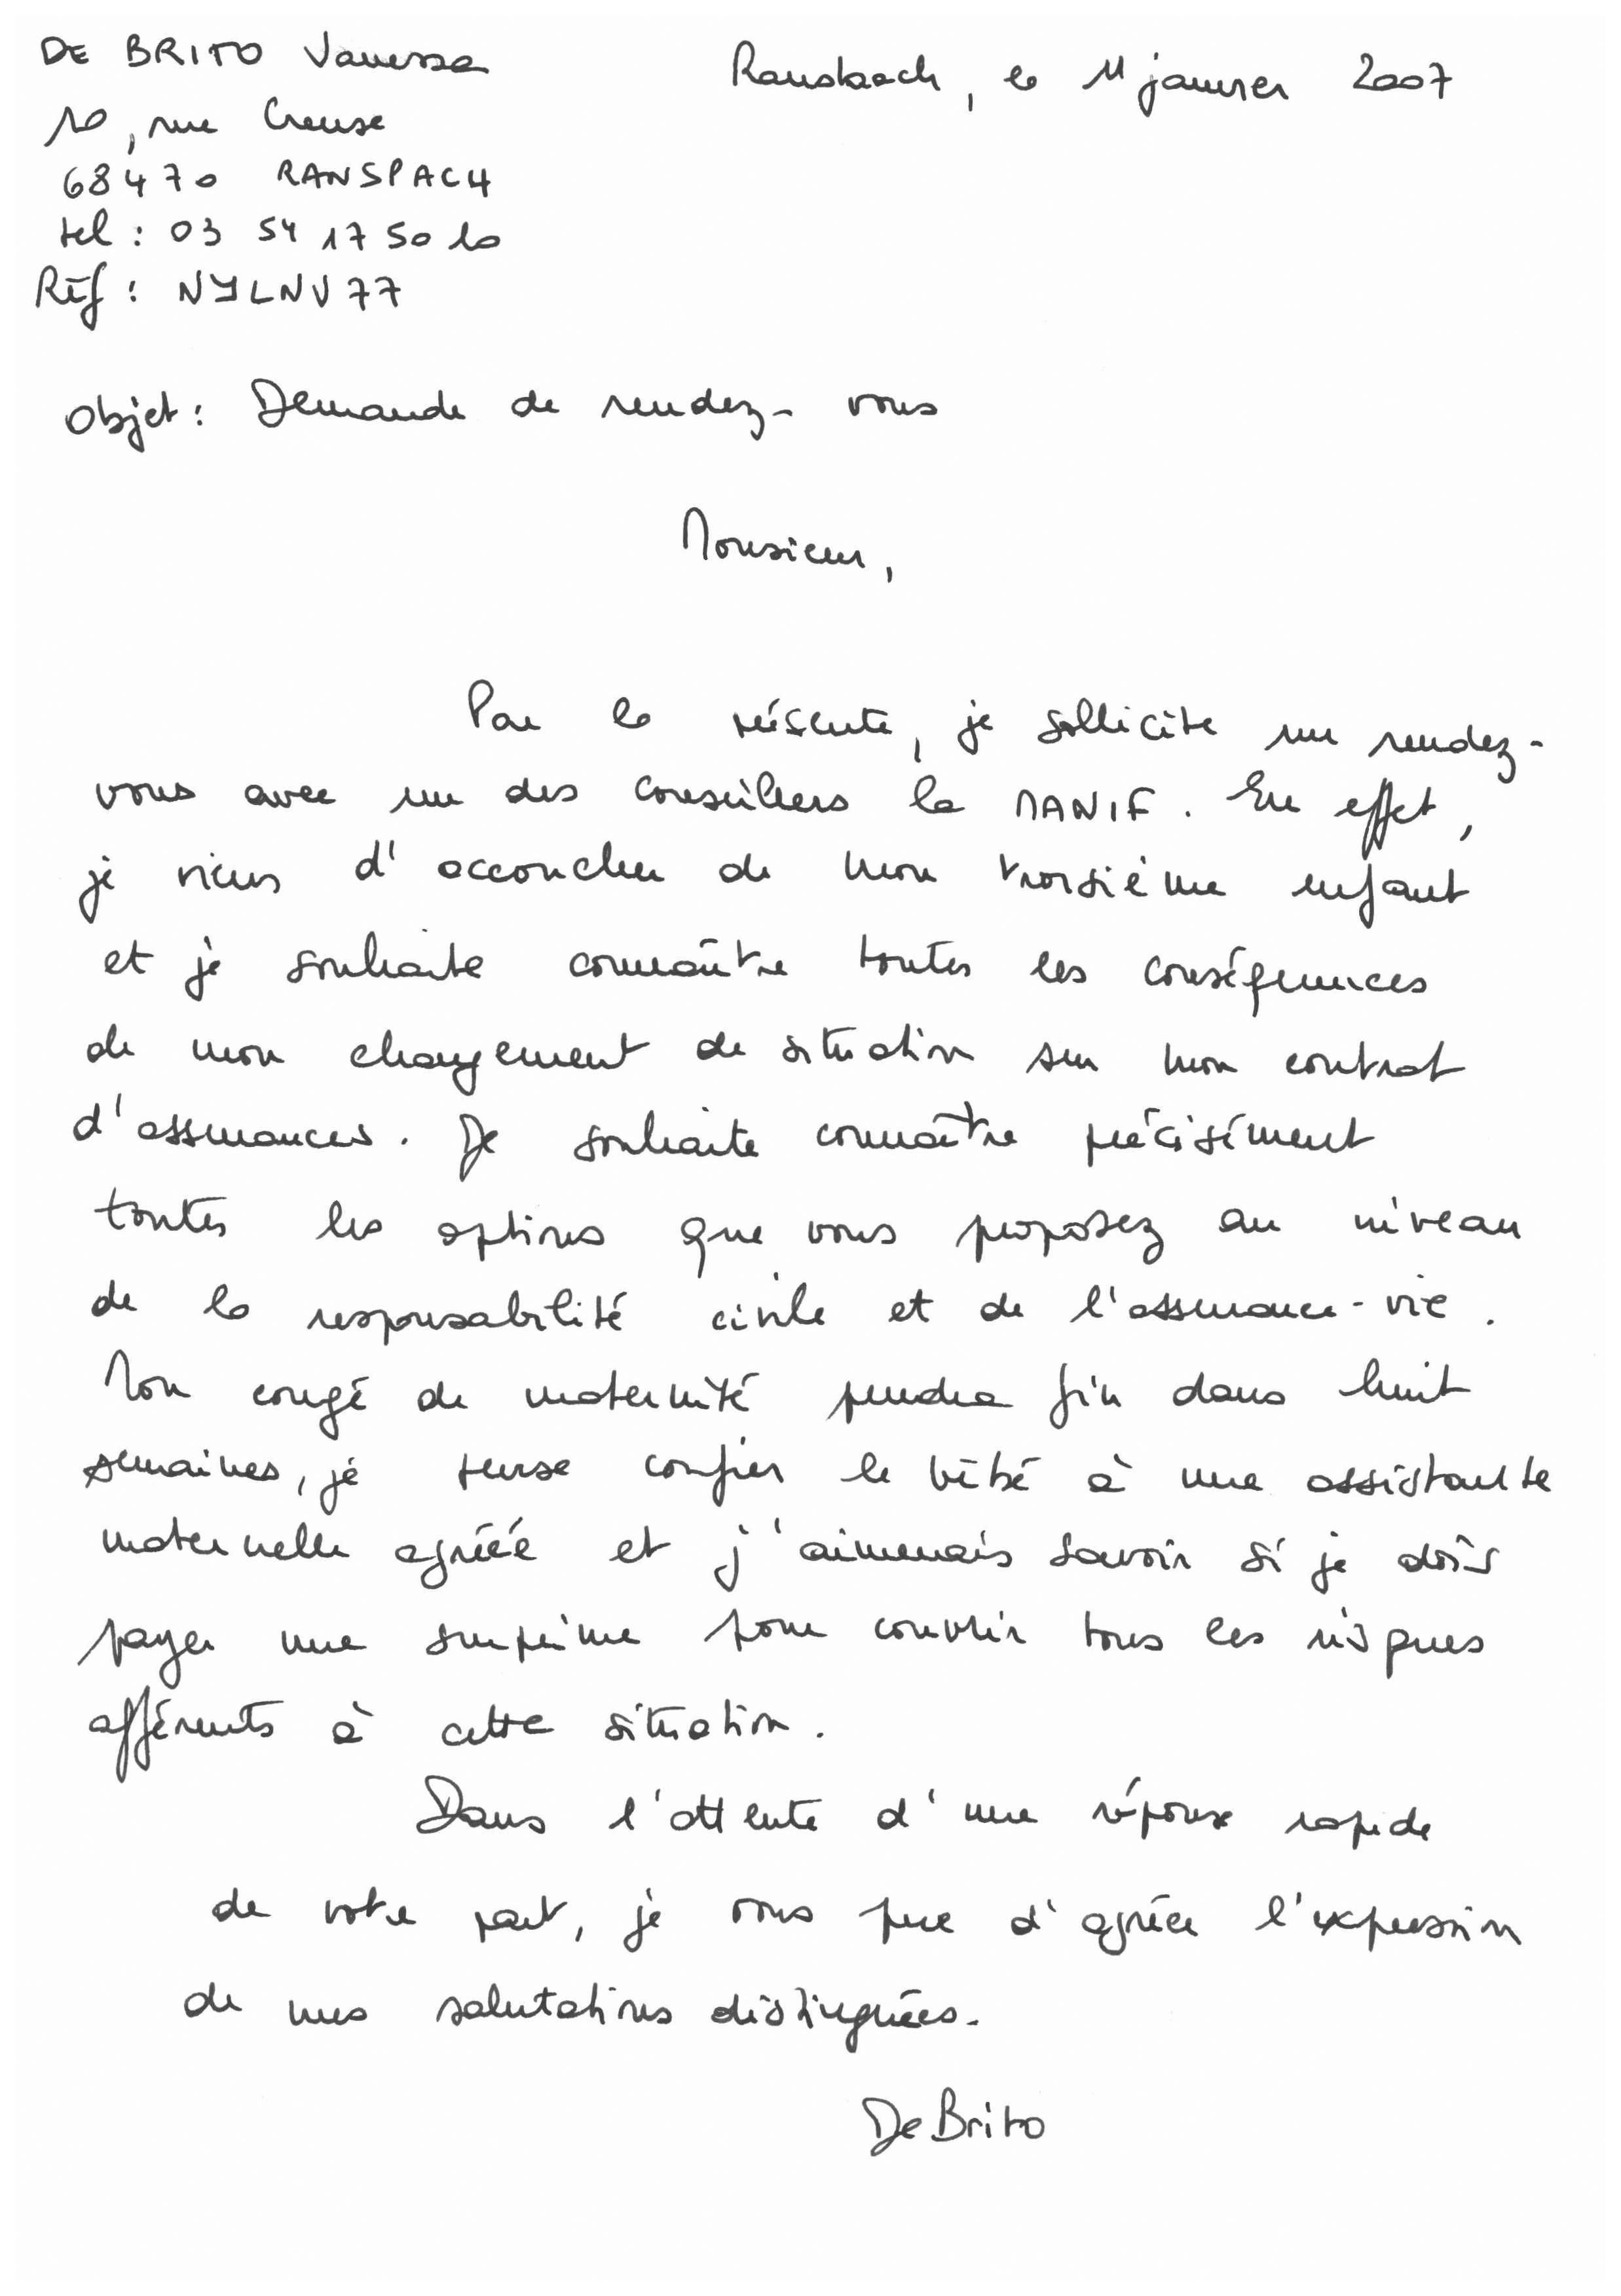 DE BRITO Vanessa
Ransbach, le 11 janvier 2007
10, rue Creuse
68470 RANSPACH
tel : 03 54 17 50 10
Réf : NYLNV77
Objet : Demande de rendez-vous
Monsieur,
Par la présente, je sollicite un rendez-
vous avec un des conseillers la MANIF. En effet,
je viens d'accoucher de mon troisième enfant
et je souhaite connaître toutes les conséquences
de mon changement de situation sur mon contrat
d'assurances. Je souhaite connaître précisément
toutes les options que vous proposez au niveau
de la responsabilité civile et de l'assurance-vie.
Mon congé de maternité prendra fin dans huit
semaines, je pense confier le bébé à une assistante
maternelle agréée et j'aimerais savoir si je dois
payer une surprime pour couvrir tous les risques
afférents à cette situation.
Dans l'attente d'une réponse rapide
de votre part, je vous prie d'agréer l'expression
de mes salutations distinguées.
De Brito